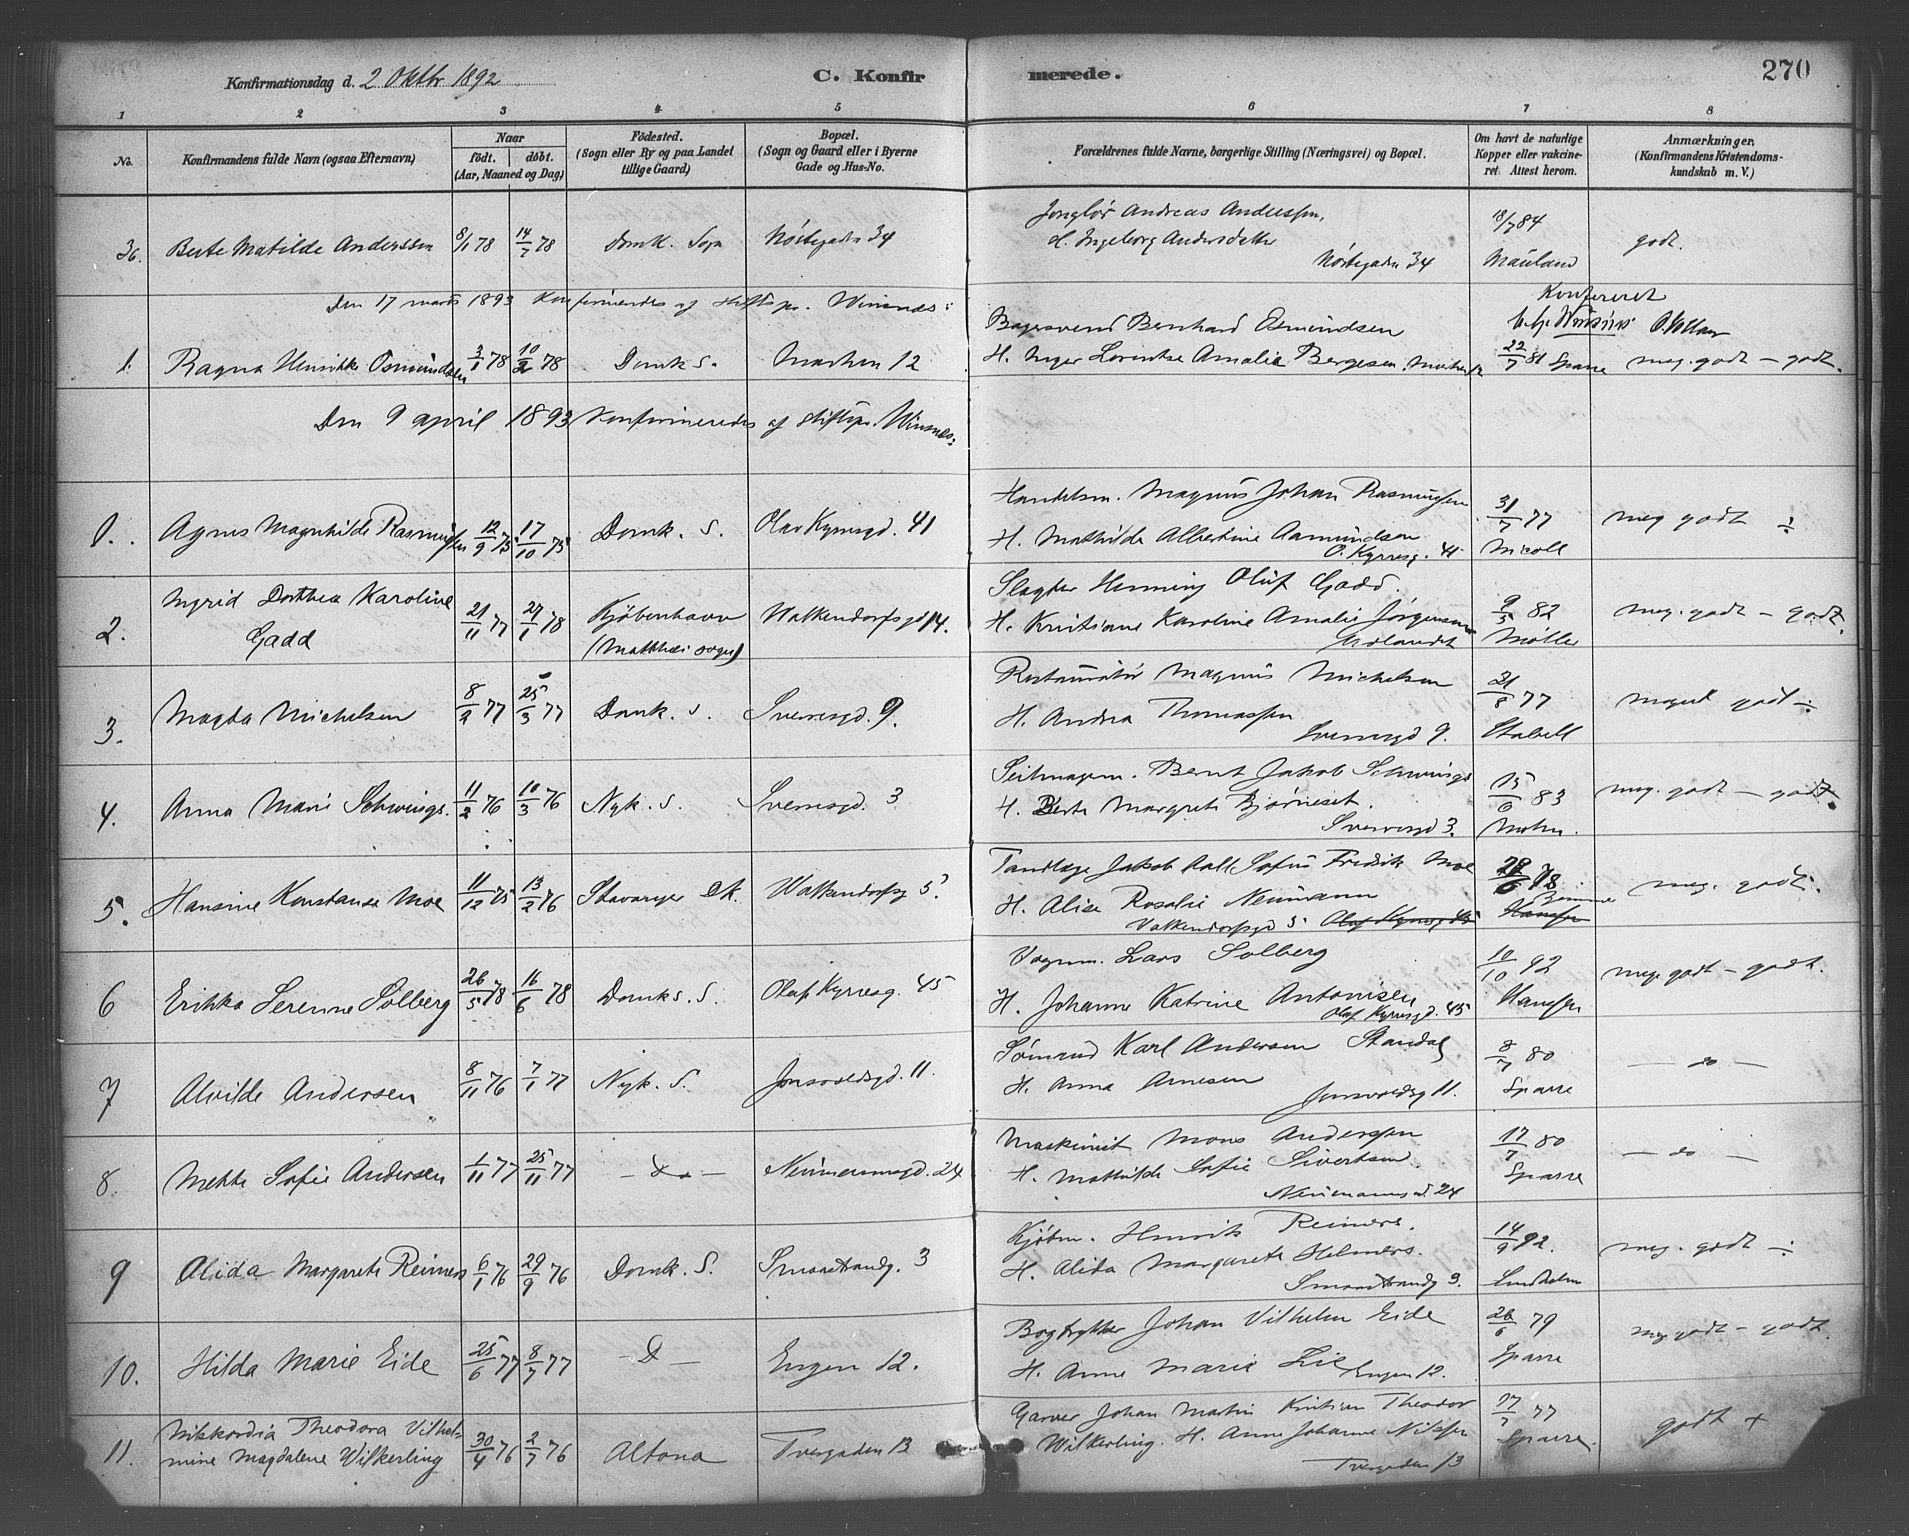 Konfirmationsdag d. 2 Oktbr 1892
C. Konfir merede. 270
1 2 3 4 5 6 7 8
No.
Konfirmandens fulde Navn (ogsaa Efternavn)
Naar
født. døbt.
(Aar, Maaned og Dag)
Födested.
(Sogn eller By og paa Landet
tillige Gaard)
Bopæl.
(Sogn og Gaard eller i Byerne
Gade og Hus-No.
Forældrenes fulde Navne, borgerlige Stilling (Næringsvei) og Bopæl.
Om havt de naturlige
Kopper eller vakcine-
ret. Attest herom.
Anmærkninger,
(Konfirmandens Kristendoms-
kundskab m. V.)
36. Berte Matilde Anderssen 8/1 78 14/7 78 Domk. Sogn Nöstegaden 34
Andreas Anderssen,
H. Ingeborg Andersdatter
Nöstegaden 34
18/7 84
Mauland
godt.
Den 17 marts 1893 Konfirmeredes af Stiftspr. Winsnes:
Konfereret
1. Ragna Henrikke Osmundsen 3/1 78 10/2 78 Domk S. Marken 12
Bagersvend Bernhard Osmundsen
H. Inger Lorentse Amalia Bergesen. Marken 12
22/7 81 Sparre
meg. godt - godt.
Den 9 april 1893 Konfirmeredes af Stiftspr. Winsnes:
1. Agnes Magnhilde Rasmussen 12/9 75 17/10 75 Domk. S. Olav Kyrresgd. 41
Handelsm. Magnus Johan Rasmussen
H. Mathilde Albertine Aamundsen
O. Kyrresg. 41
31/7 77
Nicoll
meg godt ÷
2. Ingrid Dorthea Karoline
Gadd
21/11 77 27/1 78
Kjøbenhavn
(Matthæi sogn)
Walkendorfsgd 14.
Slagter Henning Oluf Gadd.
H. Kristiane Karoline Amalie Jörgensen
Udlandet
9/5 82
Møller
meg. godt - godt.
3. Magda Michelsen 8/2 77 25/3 77 Domk. S. Sverresgd. 9.
Restauratör Magnus Michelsen
H. Andrea Thomassen
Sverresgd 9.
21/8 77
Stabell
meget godt ÷
4. Anna Marie Schwings. 11/2 76 10/3 76 Nyk. S. Sverresgd. 3
Seilmagerm. Bernt Jakob Schwings
H. Berte Margrete Bjørneset.
Sverresgd 3.
15/6 83
Mohn.
meg. godt - godt.
5. Hansine Konstanse Moe 11/12 75 13/2 76 Stavanger Dk. Walkendorfsg 5.
Tandlæge Jakob Aall Sofus Fredrik Moe
H. Alise Rosalie Neumann
Valkendorfsgd 5 Olaf Kyrresgd 45
29/6 78
Hanssen
meg. godt.
6 Erikka Serenne Solberg 26/5 78 16/6 78 Domks. S. Olaf Kyrresg. 45
Vognm. Lars Solberg
H. Johanne Katrine Antonisen
Olaf Kyrresgd. 45
10/10 92
Hanssen
meg. godt - godt.
7 Alvilde Andersen 8/11 76 7/1 77 Nyk. S. Jonsvoldsgd. 11.
Sömand Karl Andersen Standal
H. Anna Arnesen
Jonsvoldsg 11.
8/7 80
Sparre
- do -
8. Mette Sofie Andersen 1/11 77 25/11 77 - D. - Neumannsgd. 24
Maskinist Mons Anderssen
H. Mathilde Sofie Sivertsen.
Neumannsgd. 24
17/7 80
Sparre
- do -
9 Alida Margarete Reimers 6/1 76 29/9 76 Domk. S. Smaastrandg. 3
Kjøbm. Henrik Reimers.
H. Alida Margarete Helmers.
Smaastrandg 3.
14/9 92.
Lindholm
meg. godt ÷
10. Hilda Marie Eide 25/6 77 8/7 77 - D - Engen 12.
Bogtrykker Johan Vilhelm Eide
H. Anne Marie Lie Engen 12.
26/6 79
Sparre
meg godt - godt.
11. Theodora Vilhel-
mine Magdalene Wilkerling
30/4 76 2/7 76 Altona Tvergaden 13
Garver Johan Martin Kristian Theodor
Wilkerling. H. Anne Johanne Nilssen
Tvergaden 13
17/7 77
Sparre.
godt +